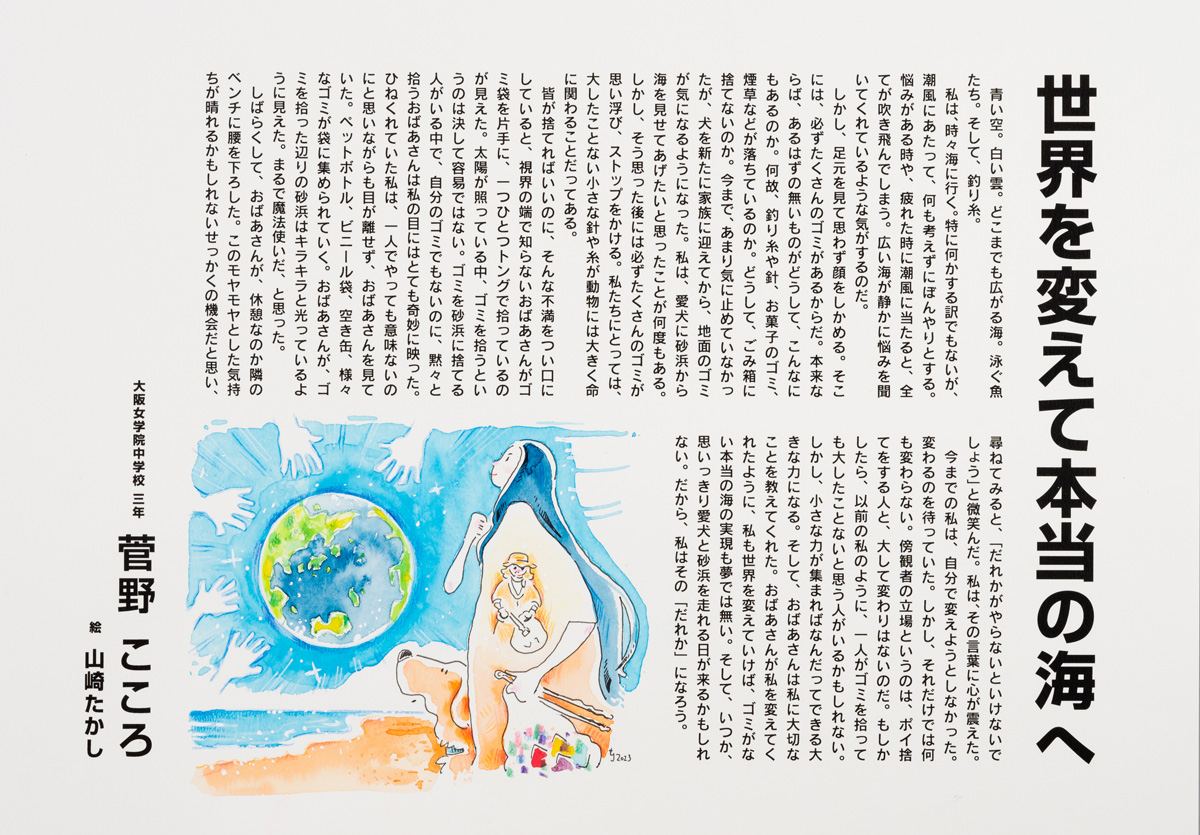 世界を変えて本当の海へ
青い空。白い雲。どこまでも広がる海。泳ぐ魚
たち。そして、釣り糸。
私は、時々海に行く。特に何かする訳でもないが、
潮風にあたって、何も考えずにぼんやりとする。
悩みがある時や、疲れた時に潮風に当たると、全
てが吹き飛んでしまう。広い海が静かに悩みを聞
いてくれているような気がするのだ。
しかし、足元を見て思わず顔をしかめる。そこ
には、必ずたくさんのゴミがあるからだ。本来な
らば、あるはずの無いものがどうして、こんなに
もあるのか。何故、釣り糸や針、お菓子のゴミ、
煙草などが落ちているのか。どうして、ごみ箱に
捨てないのか。今まで、あまり気に止めていなかっ
たが、犬を新たに家族に迎えてから、地面のゴミ
が気になるようになった。私は、愛犬に砂浜から
海を見せてあげたいと思ったことが何度もある。
しかし、そう思った後には必ずたくさんのゴミが
思い浮び、ストップをかける。私たちにとっては、
大したことない小さな針や糸が動物には大きく命
に関わることだってある。
皆が捨てればいいのに、そんな不満をつい口に
していると、視界の端で知らないおばあさんがゴ
ミ袋を片手に、一つひとつトングで拾っているの
が見えた。太陽が照っている中、ゴミを拾うとい
うのは決して容易ではない。ゴミを砂浜に捨てる
人がいる中で、自分のゴミでもないのに、黙々と
拾うおばあさんは私の目にはとても奇妙に映った。
ひねくれていた私は、一人でやっても意味ないの
にと思いながらも目が離せず、おばあさんを見て
いた。ペットボトル、ビニール袋、空き缶、様々
なゴミが袋に集められていく。おばあさんが、ゴ
ミを拾った辺りの砂浜はキラキラと光っているよ
うに見えた。まるで魔法使いだ、と思った。
しばらくして、おばあさんが、休憩なのか隣の
ベンチに腰を下ろした。このモヤモヤとした気持
ちが晴れるかもしれないせっかくの機会だと思い、
尋ねてみると、「だれかがやらないといけないで
しょう」と微笑んだ。私は、その言葉に心が震えた。
今までの私は、自分で変えようとしなかった。
変わるのを待っていた。しかし、それだけでは何
も変わらない。傍観者の立場というのは、ポイ捨
てをする人と、大して変わりはないのだ。もしか
したら、以前の私のように、一人がゴミを拾って
も大したことないと思う人がいるかもしれない。
しかし、小さな力が集まればなんだってできる大
きな力になる。そして、おばあさんは私に大切な
ことを教えてくれた。おばあさんが私を変えてく
れたように、私も世界を変えていけば、ゴミがな
い本当の海の実現も夢では無い。そして、いつか、
思いっきり愛犬と砂浜を走れる日が来るかもしれ
ない。だから、私はその「だれか」になろう。
大阪女学院中学校 三年 菅野 こころ
絵 山崎たかし
ty 2023